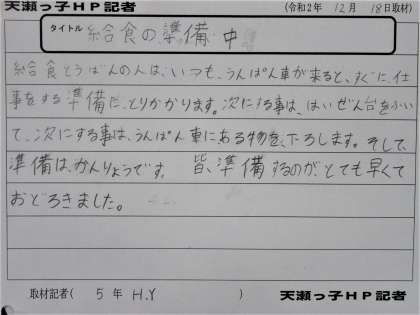 天瀬っ子HP記者
(令和2年 12月 18日取材)
タイトル
給食の準備中
給食とうばんの人は、いつも、うんぱん車が来ると、すぐに、仕
事をする準備に、とりかかります。次にする事は、はいぜん台をふい
て、次にする事は、うんぱん車にある物を、下ろします。そして、
準備は、かんりょうです。 皆、準備するのが、とても早くて
おどろきました。
取材記者( 5年 H.Y )
天瀬っ子HP記者